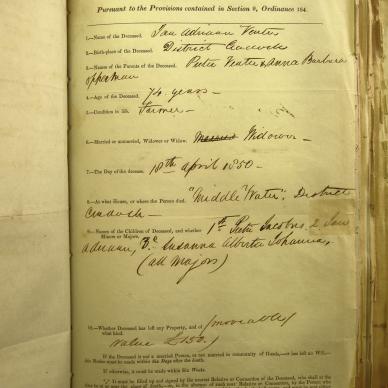 Pursuant to the Provisions contained in Section 9, Ordinance 104.
1.—Name of the Deceased. Jan Adriaan Venter
2.—Birth-place of the Deceased. District Cradock
3.—Names of the Parents of the Deceased. Pieter Venter & Anna Barbara
Opperman
4.—Age of the Deceased. 74 years —
5.—Condition in life. Farmer —
6.—Married or unmarried, Widower or Widow. Married Widower —
7.—The Day of the decease. 18th April 1850 —
8.—At what House, or where the Person died. "Middle Water", District
Cradock —
9.—Names of the Children of Deceased, and whether Minors or Majors. 1st Pieter Jacobus, 2 Jan
Adriaan, 3d Susanna Albertus Johannas,
(all Majors)
10.—Whether Deceased has left any Property, and of what kind. (moveable)
Value £150.
If the Deceased is not a married Person, or not married in community of Goods,
this Notice must be filled within the Six Days after the death.
If otherwise, it must be made within Six Weeks.